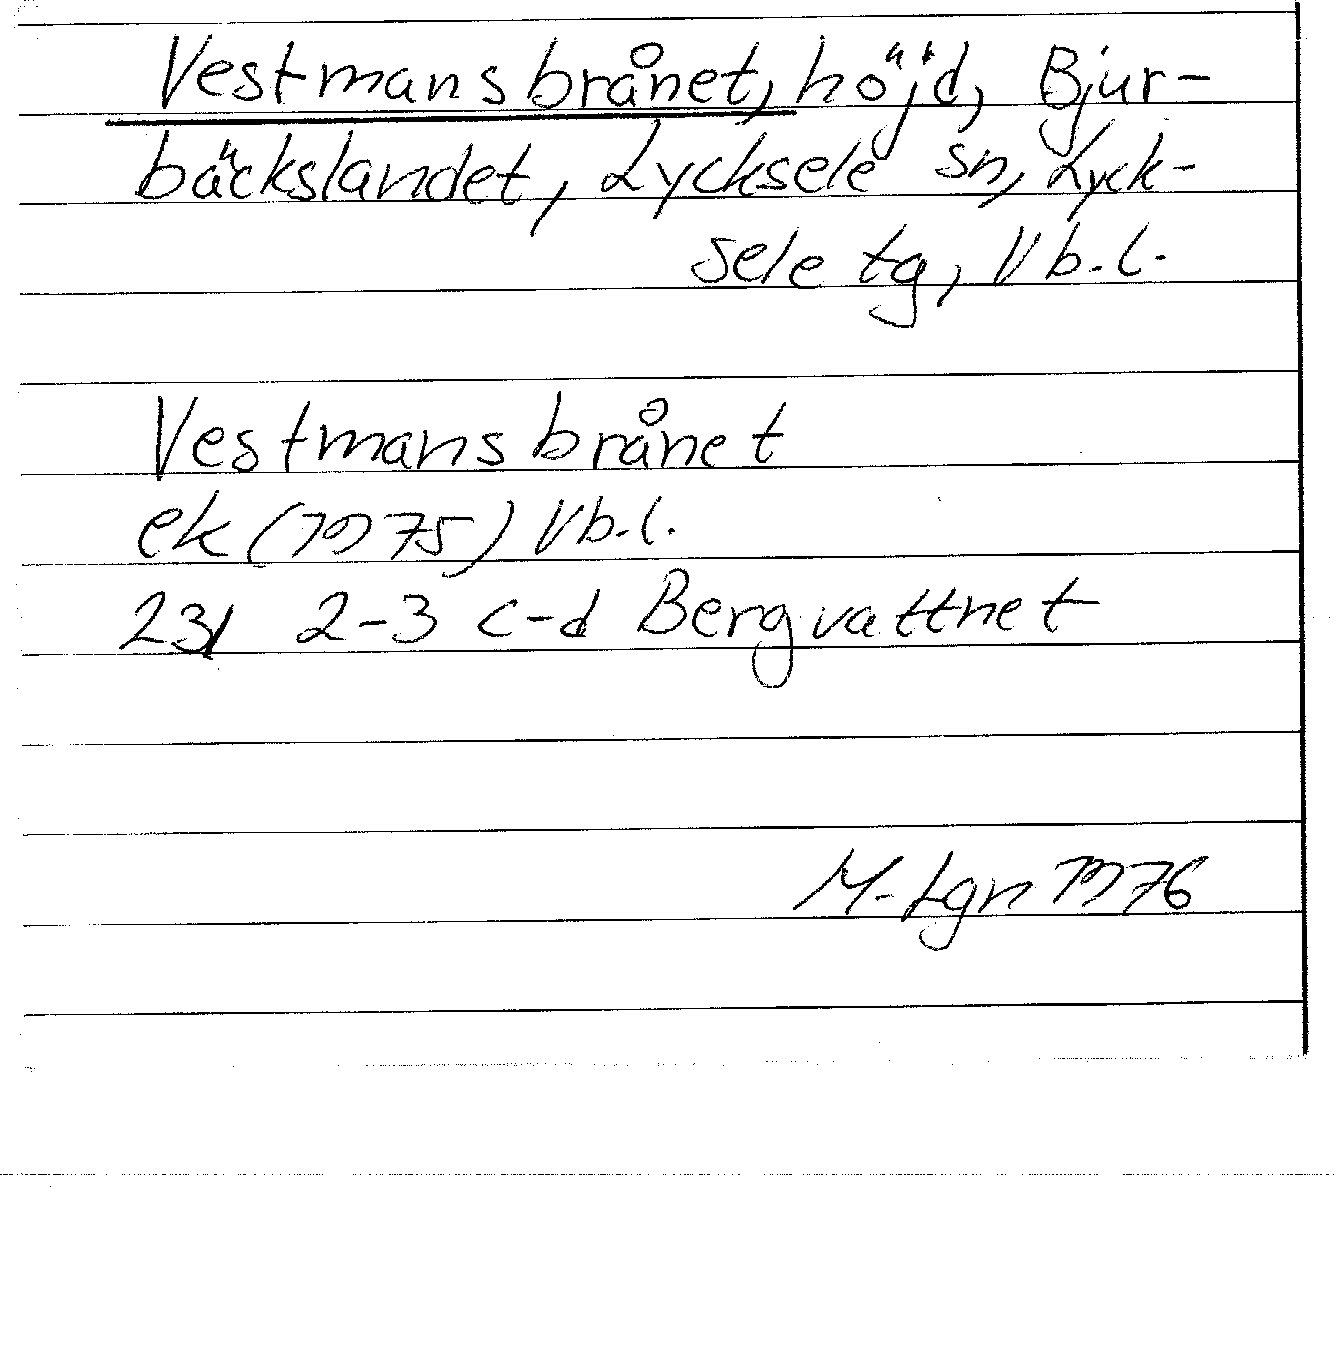 Vestmansbrånet, höjd, Bjur-
bäckslandet, Lycksele sn, Lyck-
sele tg, Vb.l.
Vestmansbrånet
ek (1975) Vb.l.
23I 2-3 c-d Bergvattnet
M. Lgn 1976